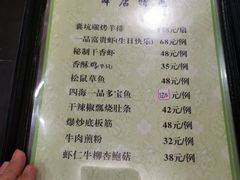 囊坑碳烤羊排 48元/扇
一品富贵虾(生日快乐) 68元/例
秘制干香虾 48元/例
香酥鸡(半只) 35元/例
松鼠草鱼 58元/例
四海一品多宝鱼 128元/例
干辣椒飘烧肚条 42元/例
爆炒底板筋 48元/例
牛肉煎粉 32元/例
虾仁牛柳杏鲍菇 38元/例